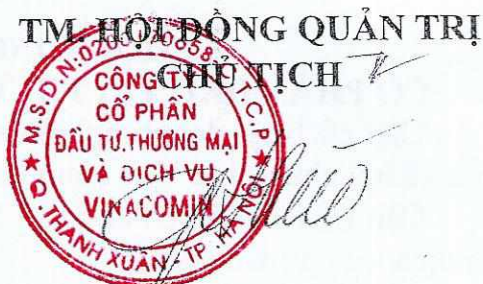 TM. HỘI ĐỒNG QUẢN TRỊ
CHỦ TỊCH
CÔNG TY
CỔ PHẦN
ĐẦU TƯ.THƯƠNG MẠI
VÀ DỊCH VỤ
VINACOMIN
M.S.D.N:
T.C.P
Q.THANH XUÂN - TP. HÀ NỘI